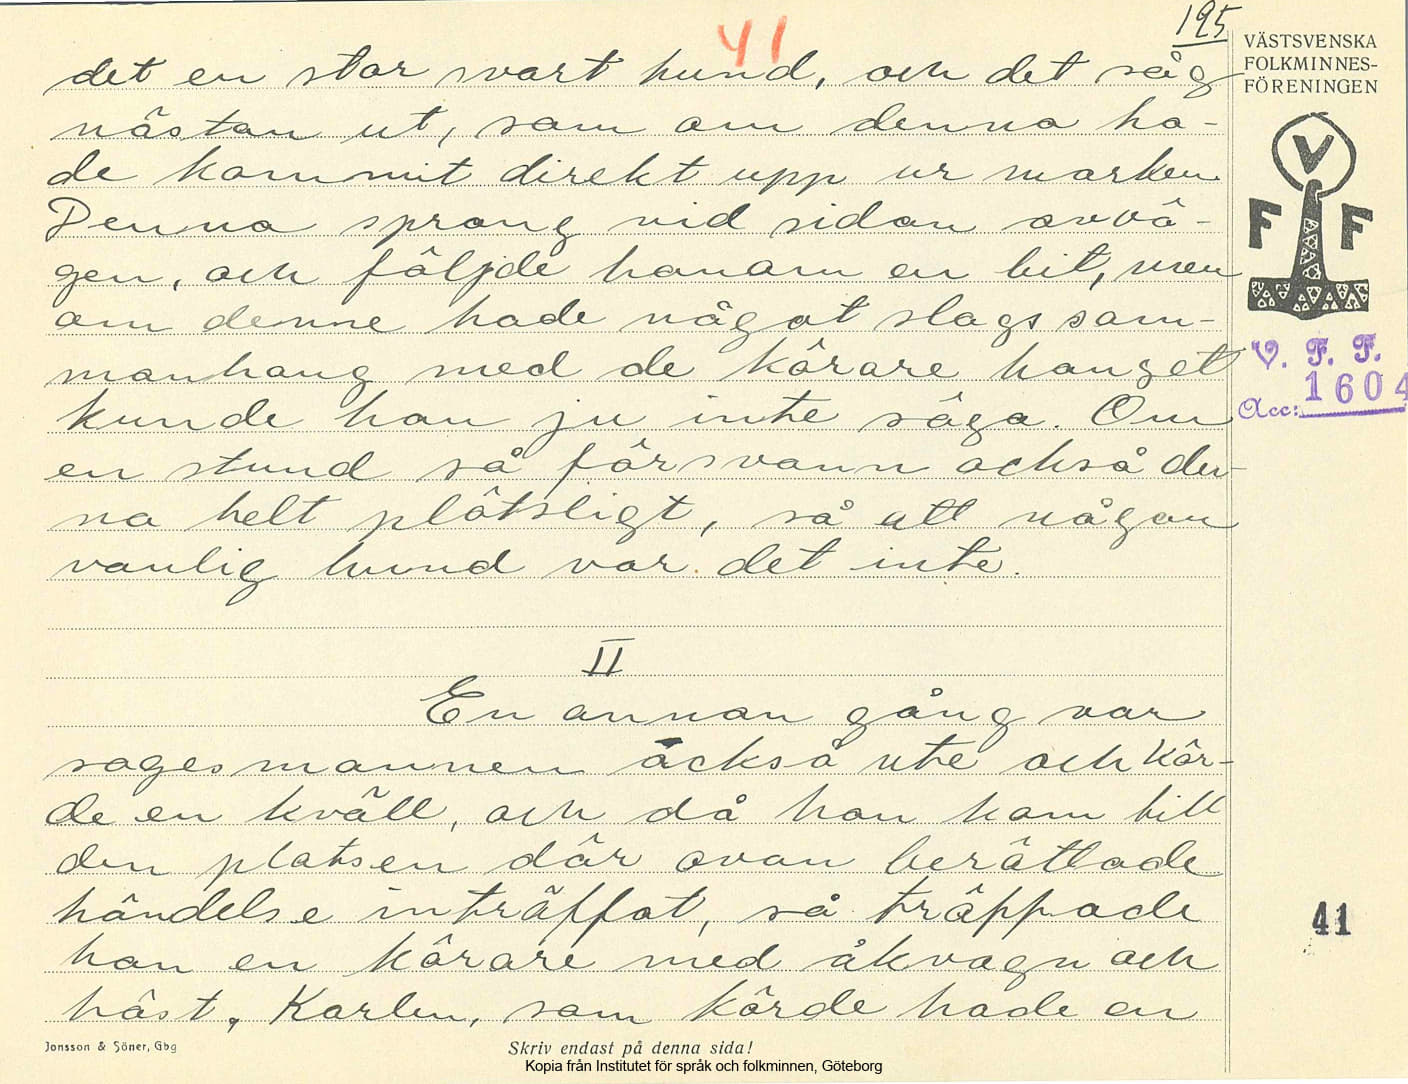 41
195
det en stor svart hund, och det såg
nästan ut, som om denna ha-
de kommit direkt upp ur marken.
Denna sprang vid sidan avvä-
gen, och följde honom en bit, men
om denne hade något slags sam-
manhang med de körare han sett
kunde han ju inte säga. Om
en stund så försvann också den-
na helt plötsligt, så att någon
vanlig hund var det inte.
II
En annan gång var
sagesmannen också ute och kör-
de en kväll, och då han kom till
den platsen där ovan berättade
händelse inträffat, så träppade
han en körare med åkvagn och
häst. Karlen, som körde hade en
VÄSTSVENSKA
FOLKMINNES-
FÖRENINGEN
V
F F
V. F. F.
Acc: 1604
41
Jonsson & Söner, Gbg
Skriv endast på denna sida!
Kopia från Institutet för språk och folkminnen, Göteborg